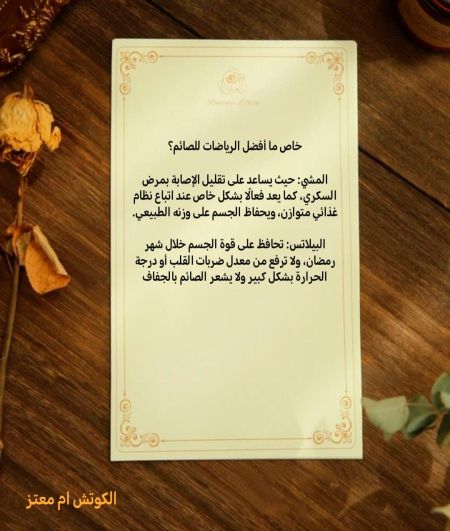 خاص ما أفضل الرياضات للصائم؟
المشي: حيث يساعد على تقليل الإصابة بمرض
السكري، كما يعد فعالًا بشكل خاص عند اتباع نظام
غذائي متوازن، ويحفاظ الجسم على وزنه الطبيعي.
البيلاتس: تحافظ على قوة الجسم خلال شهر
رمضان، ولا ترفع من معدل ضربات القلب أو درجة
الحرارة بشكل كبير ولا يشعر الصائم بالجفاف
الكوتش ام معتز